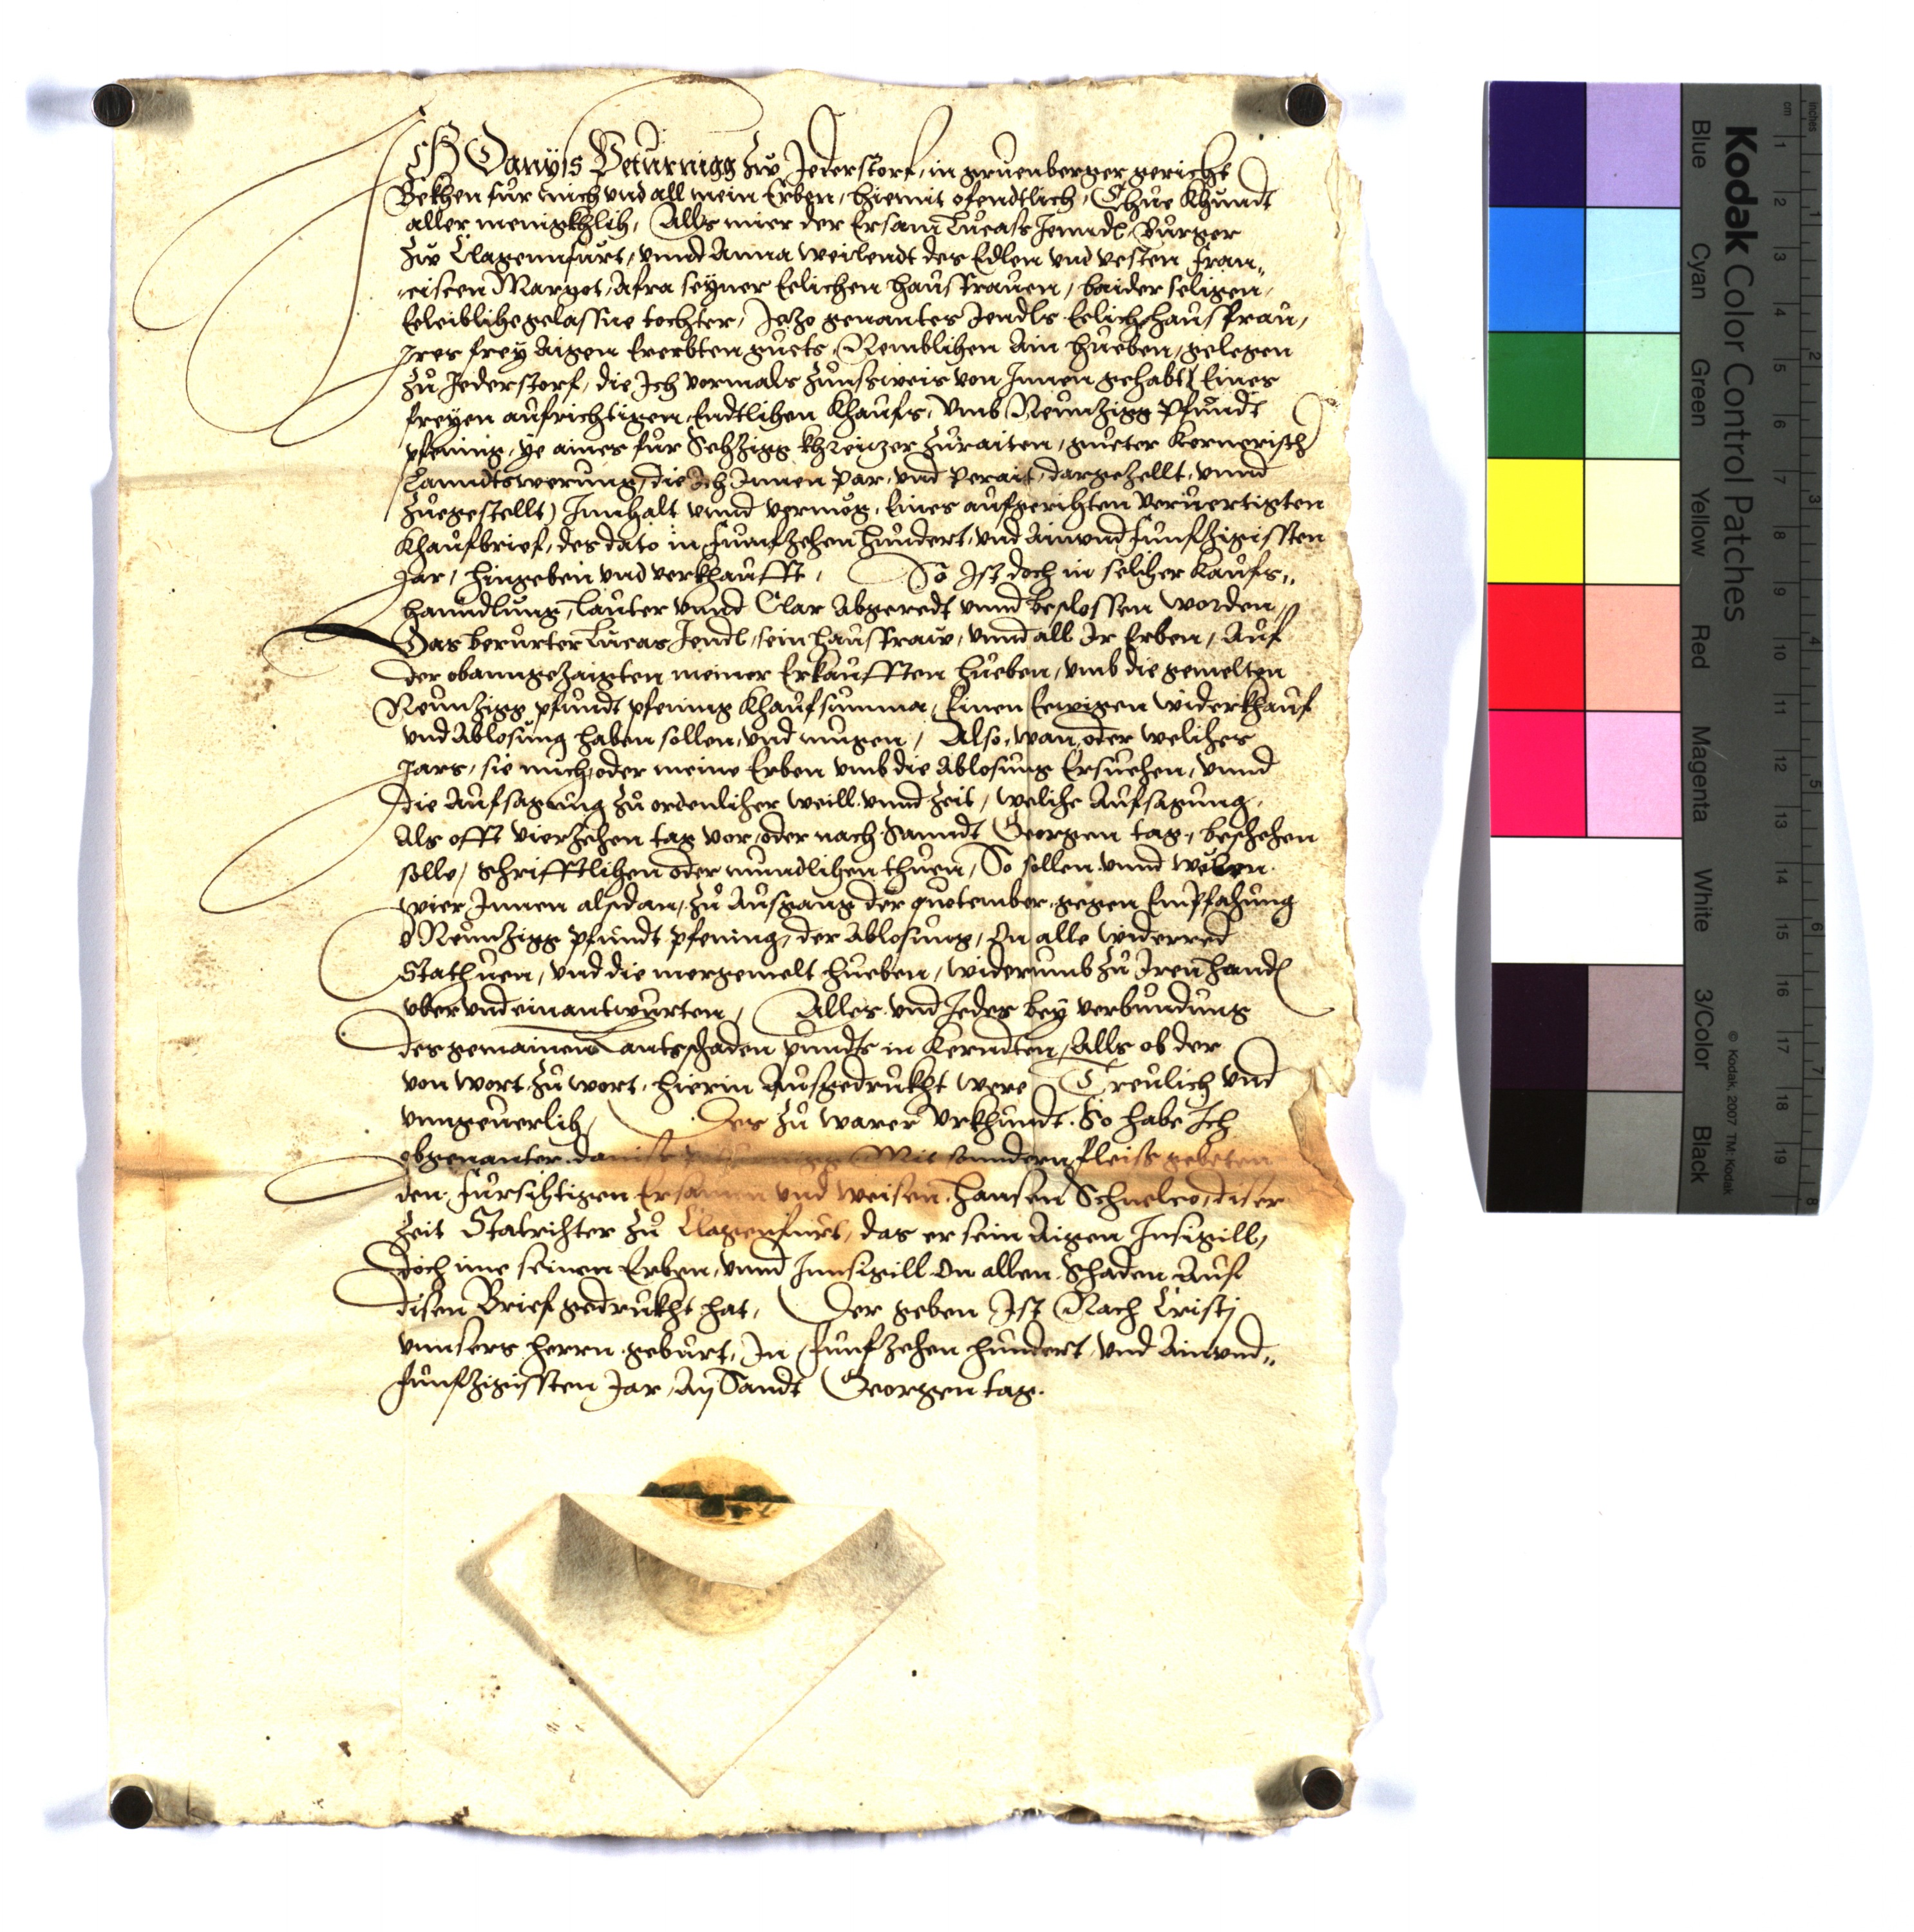 Ich Danyis Peturnigg zw Jederstorf, in gruenberger gericht
Bekhen für mich und all mein Erben, hiemit ofendtlich, Thue khundt
aller menigkhlich, Alls mier der Ersam Lucass Jenndl, Burger
zw Clagennfurt, unnd Anna weilendt des Edlen und vesten Fran„
ciscen Margot, Afra seyner Eelichen hausfrauen, baider seligen,
Eeleiblihe gelassne tochter, Jezo genantes Jendls Eelich hausfrau,
Jres frey Aigen Ererbten guets, Nemblihen Ain hueben, gelegen
zu Jederstorf, die Jch vormals zunssweis von Jnnen gehabt (Eines
freyen aufrichtigen, Endtlihen khaufs, Umb Neunzigg Pfundt
pfening, ye aines fur Sehzigg khreizer zuraiten, gueter Kernerisch
Lanndtswerung, die Jch Jnnen Par, und Perait, dargezellt, unnd
zuegestellt) Jnnhalt unnd vermög, Eines aufgerihten Veruertigten
khaufbrief, des dato in Funfzehen hundert, und Ainund Funfzigissten
Jar, hingeben und verkhaufft, So Jst doch in selher kaufs„
hanndlung, lauter unnd Clar Abgeredt unnd beslossen worden,
Das berurter Lucas Jendl, sein hausfraw, unnd all Jr Erben, Auf
der obanngezaigten meiner Erkaufften hueben, umb die gemelten
Neunzigg pfundt pfening khaufsumma, Einen Eewigen widerkhauf
und Ablosung haben sollen, und mugen, Also, wan, oder welihes
Jars, sie mich, oder meine Erben umb die Ablosung Ersuehen, unnd
die Aufsagung zu ordenliher weill unnd zeit, welihe Aufsagung,
Als offt vierzehen tag vor, oder nach Sanndt Georgen tag, beshehen
solle, schrifftlihen oder mundlihen thuen, So sollen unnd wellen
wier Jnnen alsdan, zu Ausgang der quotember, gegen Empfahung
d Neunzigg pfundt pfening, der Ablosung, On alle widerred
Stathuen, und die mergemelt hueben, widerumb zu Jren handen
uber und einantwurten, Alles und Jedes bey verbundung
des gemainen Lantsschaden pundts in Kerndten, Alls ob der
von wort zu wort, hierin Ausgedrukht were Treulich und
ungeuerlih, Des zu warer Urkhundt. So habe Jch
obgenanter Mit sonndern fleiss gebeten
den fursihtigen Ersamen und weisen, Hansen Schnelco, diser
zeit Statrihter zu Clagenfurt, das er sein Aigen Jnsigill,
doch ime seinen Erben, unnd Jnnsigill On allen Schaden Auf
disen Brief gedrukht hat, Der geben Jst Nach Cristj
unnsers herrn geburt, Jn Funfzehen hundert, und Ainund„
funfzigissten Jar, An Sandt Georgen tag.
Kodak Color Control Patches
Blue Cyan Green Yellow Red Magenta White 3/Color Black
© Kodak, 2007 TM: Kodak
inches 1 2 3 4 5 6 7 8
cm 1 2 3 4 5 6 7 8 9 10 11 12 13 14 15 16 17 18 19